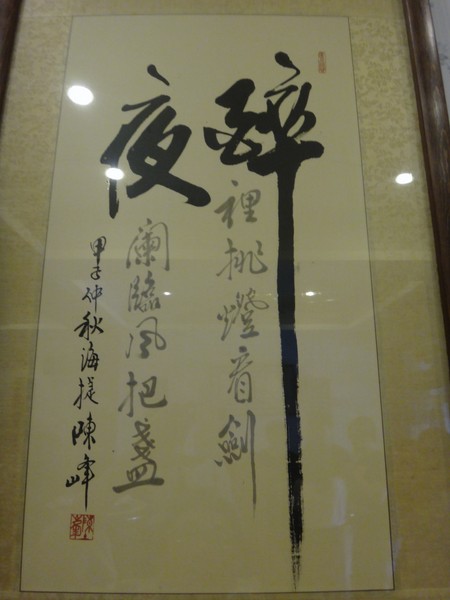 醉裡挑燈看劍
夜闌臨風把盞
甲子仲秋海堤陳峰